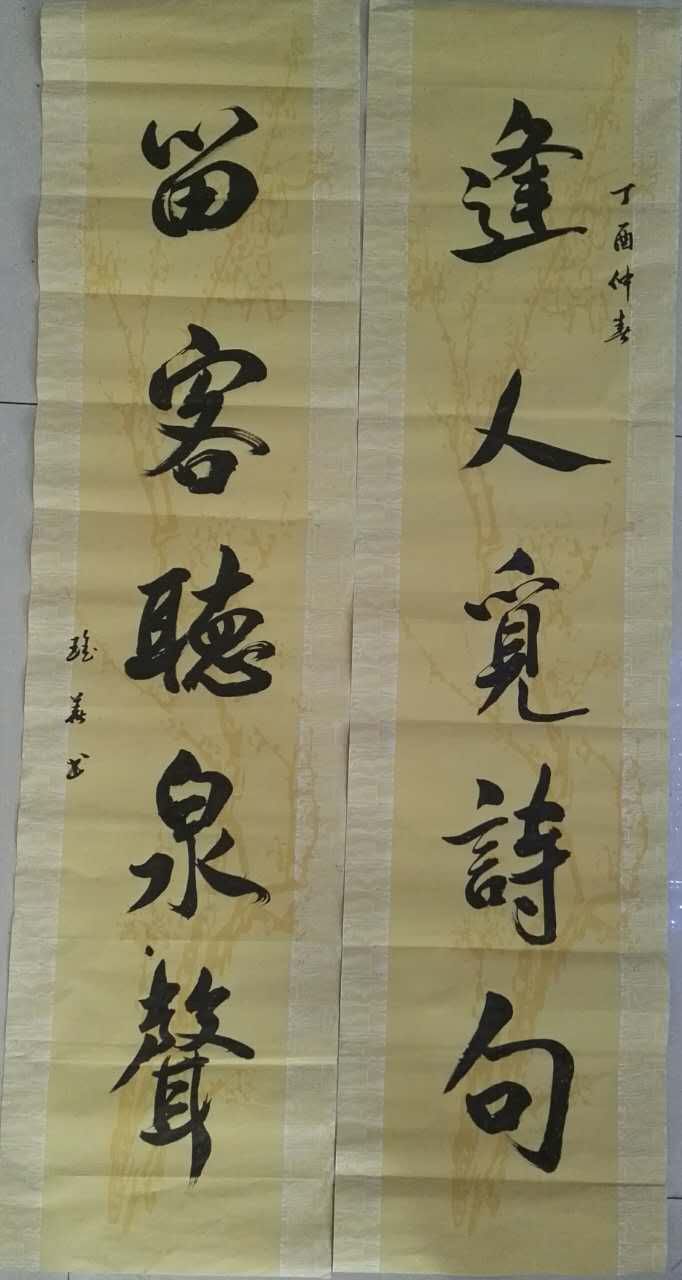 丁酉仲春
逢人覓詩句
留客聽泉聲
书